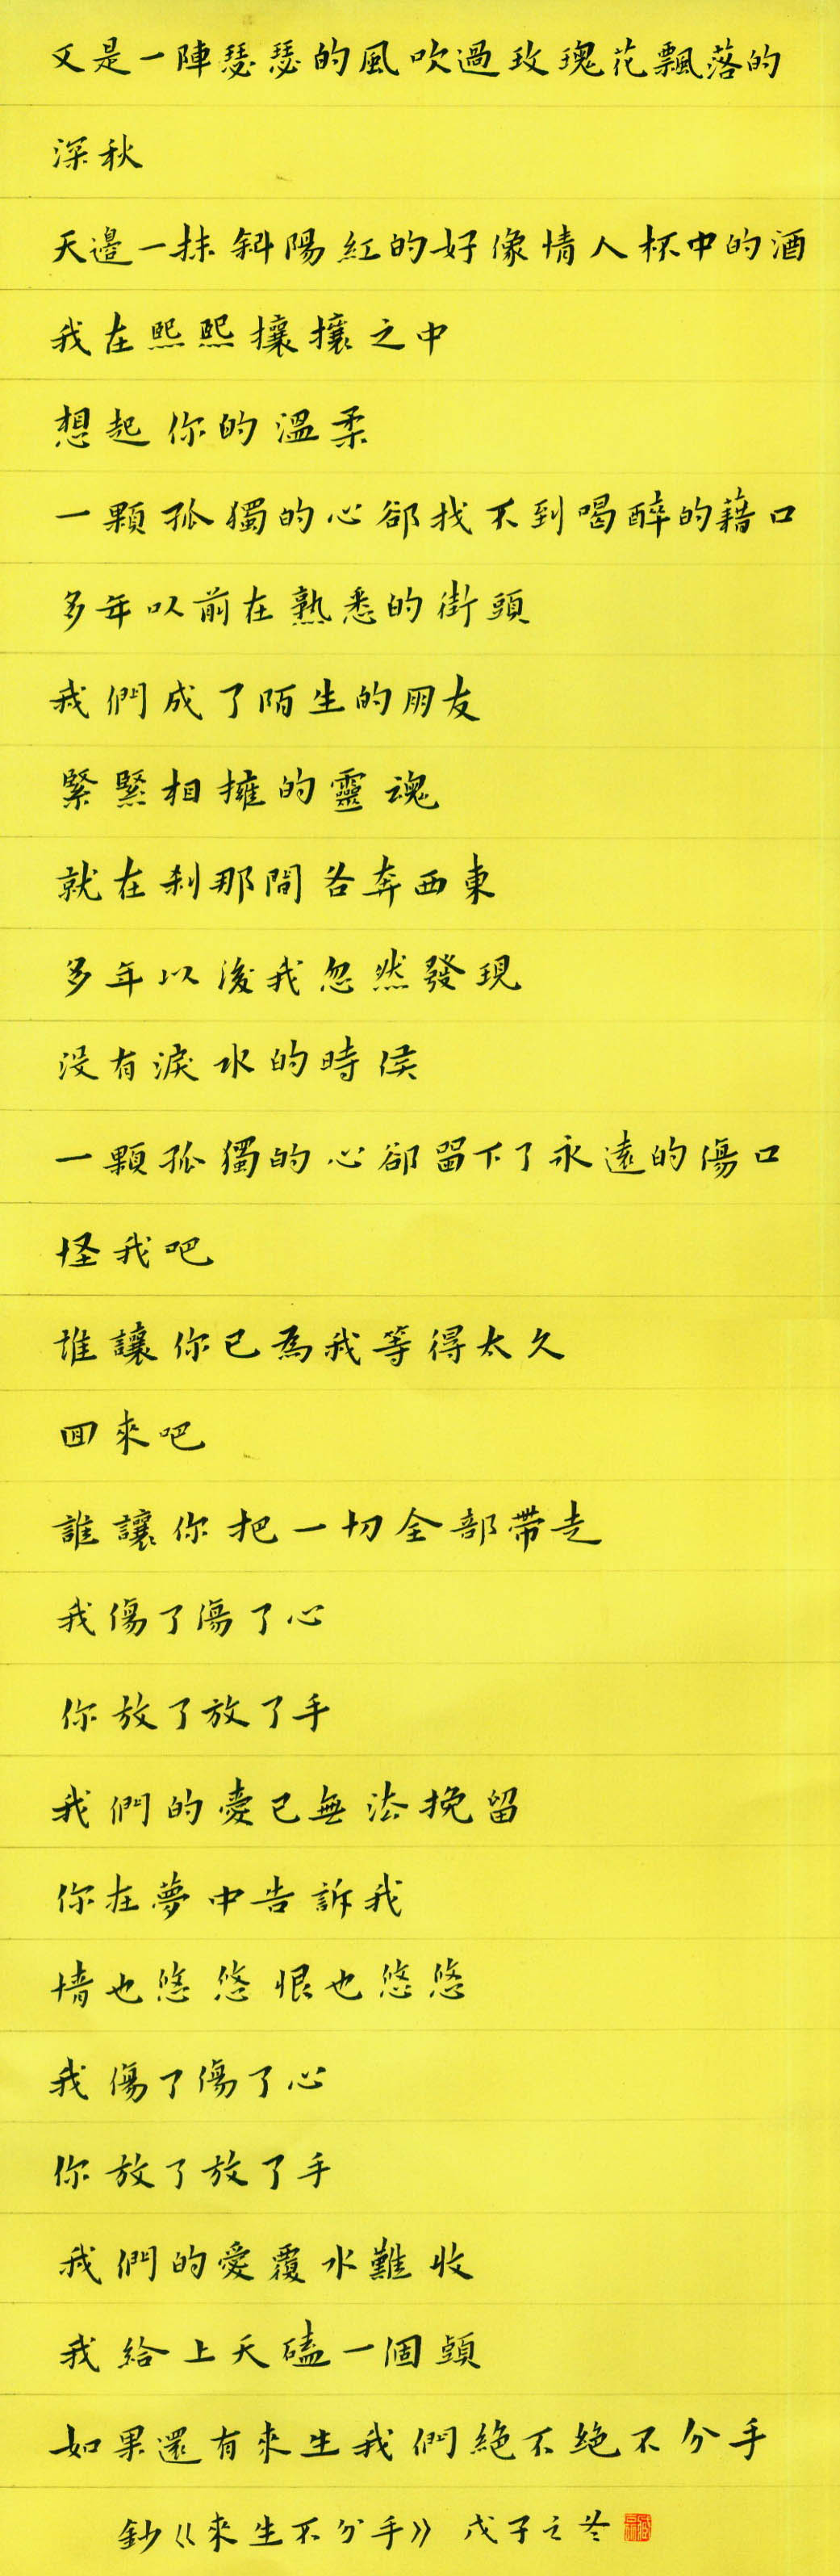 又是一陣瑟瑟的風吹過玫瑰花飄落的
深秋
天邊一抹斜陽紅的好像情人杯中的酒
我在熙熙攘攘之中
想起你的溫柔
一顆孤獨的心郤找不到喝醉的藉口
多年以前在熟悉的街頭
我們成了陌生的朋友
緊緊相擁的靈魂
就在刹那間各奔西東
多年以後我忽然發現
没有淚水的時侯
一顆孤獨的心郤留下了永遠的傷口
怪我吧
誰讓你已為我等得太久
回來吧
誰讓你把一切全部帶走
我傷了傷了心
你放了放了手
我們的愛已無法挽留
你在夢中告訴我
情也悠悠恨也悠悠
我傷了傷了心
你放了放了手
我們的愛覆水難收
我給上天磕一個頭
如果還有來生我們絕不絕不分手
鈔《來生不分手》 戊子之冬